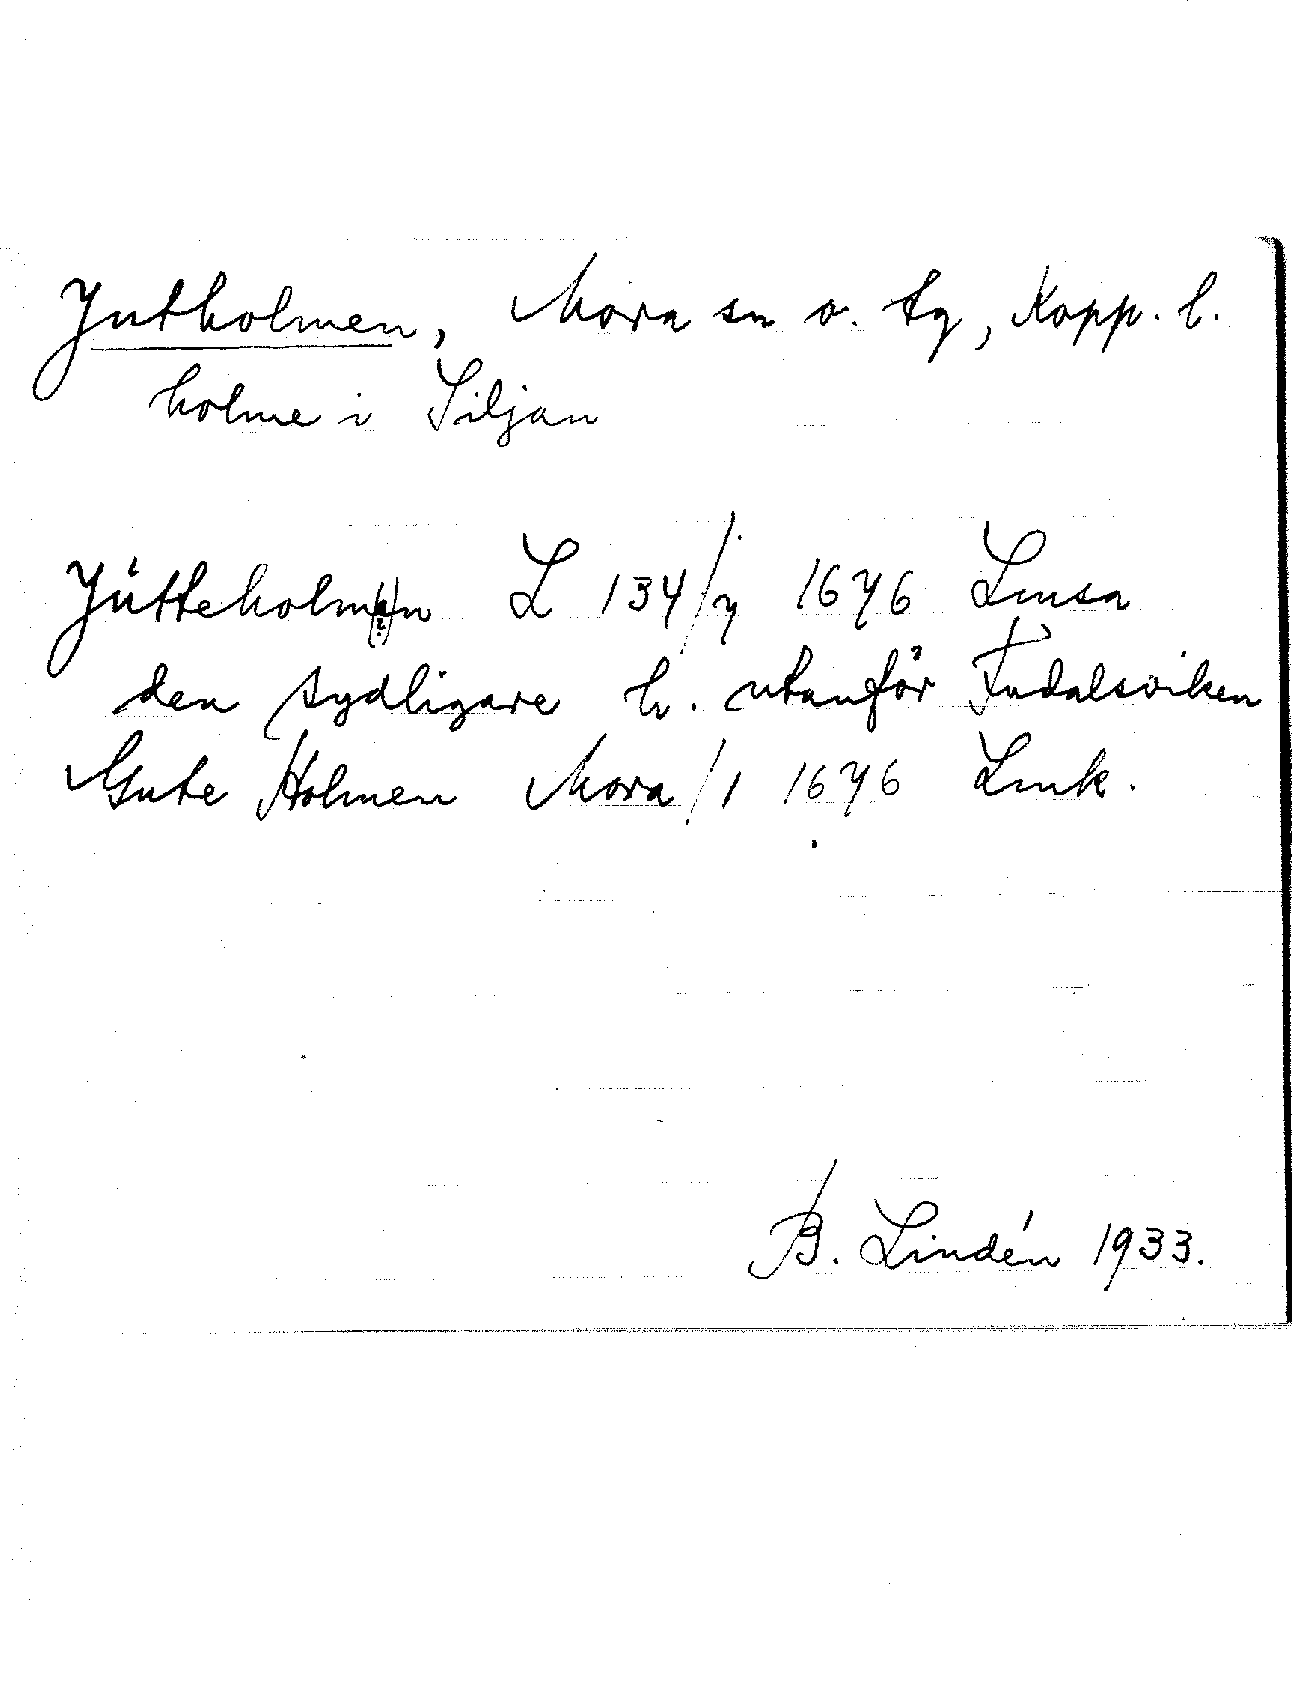 Jutholmen, Mora sn o. tg, Kopp. l.
holme i Siljan
Jütteholmen L 134/7 1676 Lmsa
den sydligare h. utanför Fudalsviken
Gute Holmen Mora/1 1676 Lmk.
B. Lindén 1933.